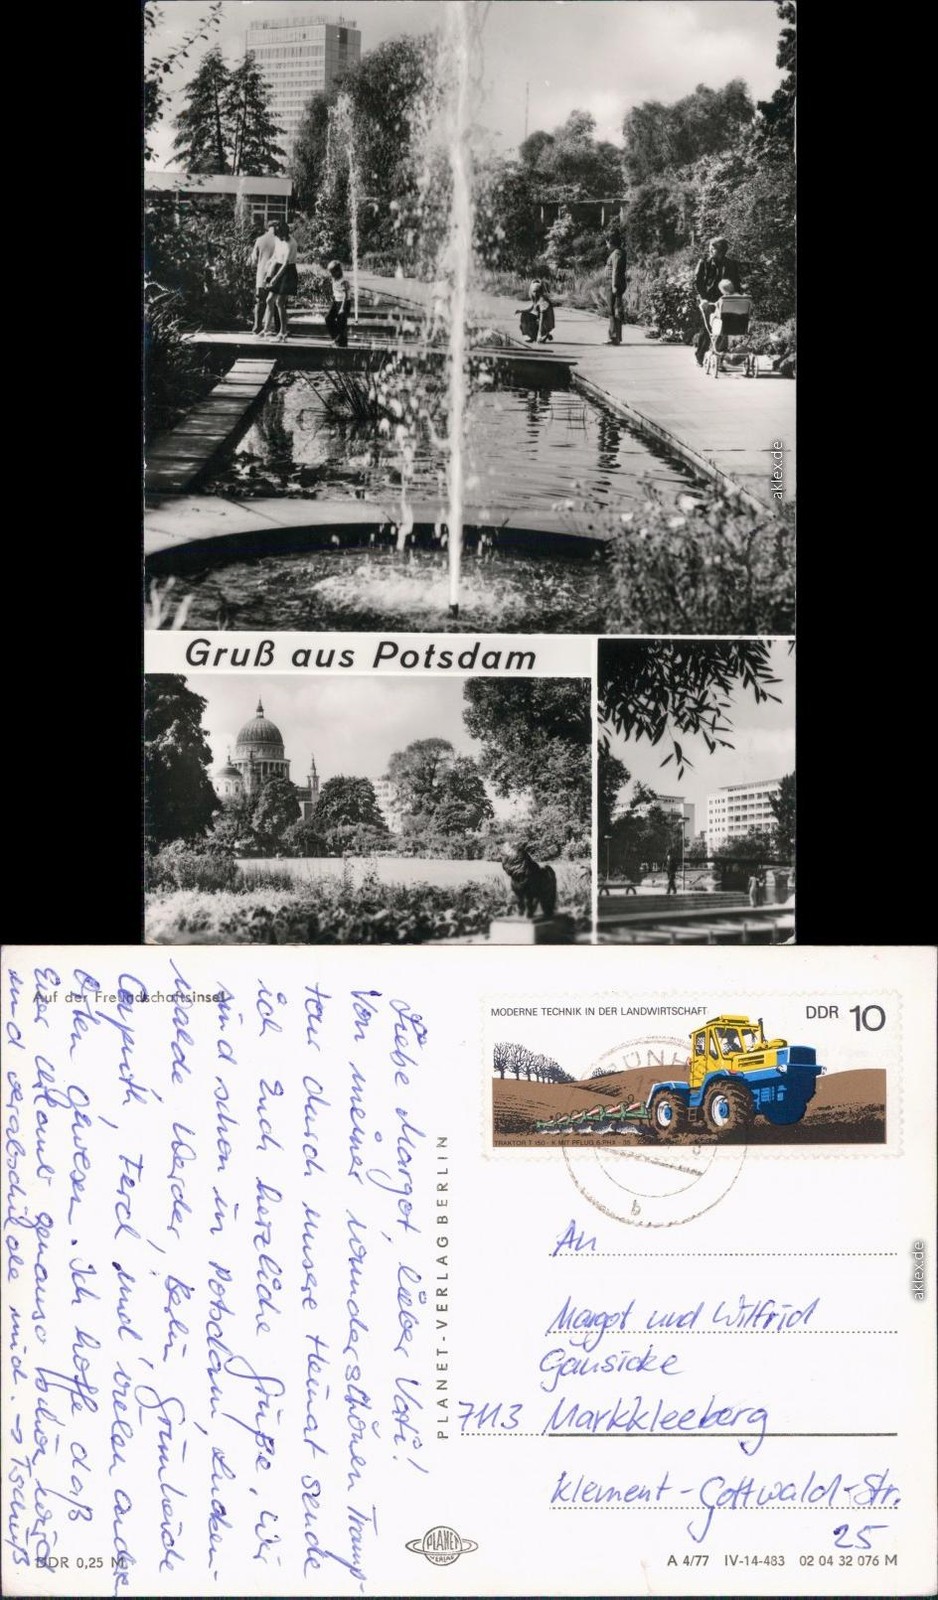 Gruß aus Potsdam
aklex.de
Auf der Freundschaftsinsel
Liebe Margot, lieber Vati!
Von meiner wunderschönen Tramp-
tour durch unsere Heimat sende
ich Euch herzliche Grüße. Wir
sind schon in Potsdam, Lucken-
walde, Werder, Berlin, Grünheide
Caputh, Ferch und vielen anderen
Orten gewesen. Ich hoffe daß
Euer Urlaub genauso schön wird
und verabschiede mich. → Tschüß
PLANET-VERLAG BERLIN
MODERNE TECHNIK IN DER LANDWIRTSCHAFT
DDR 10
TRAKTOR T 150-K MIT PFLUG B 6 PHX-35
b
An
Margot und Wilfrid
Gänsicke
7113 Markkleeberg
Klement-Gottwald-Str.
25
aklex.de
DDR 0,25 M
PLANET
VERLAG
A 4/77 IV-14-483 02 04 32 076 M